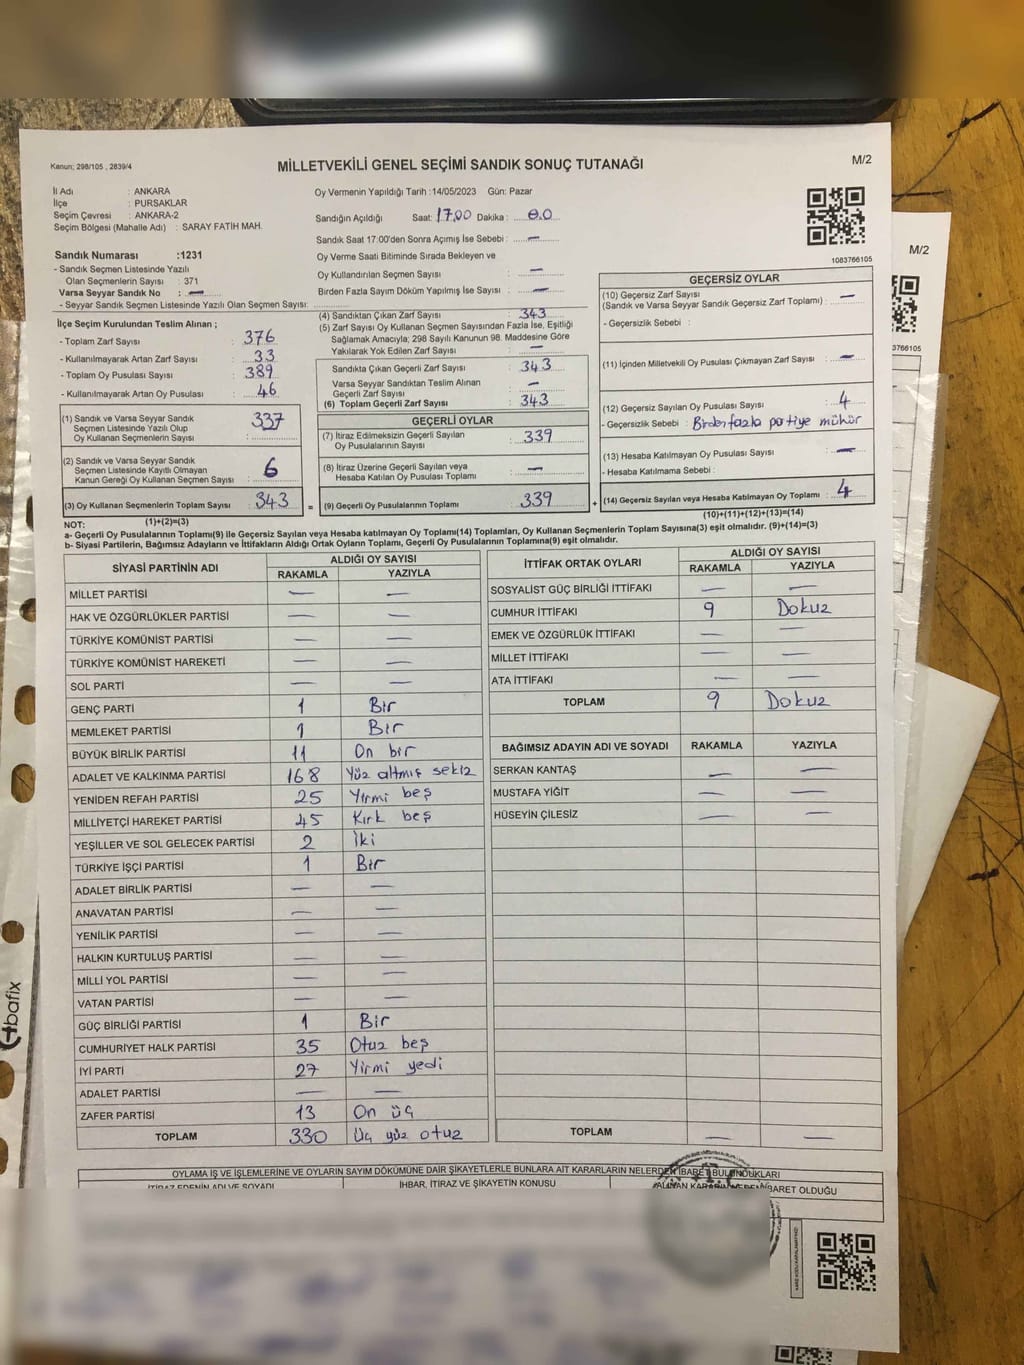 Kanun; 298/105 , 2839/4
MİLLETVEKİLİ GENEL SEÇİMİ SANDIK SONUÇ TUTANAĞI
M/2
İl Adı : ANKARA
İlçe : PURSAKLAR
Seçim Çevresi : ANKARA-2
Seçim Bölgesi (Mahalle Adı) : SARAY FATİH MAH.
Oy Vermenin Yapıldığı Tarih :14/05/2023 Gün: Pazar
Sandığın Açıldığı Saat: 17.00 Dakika : 0.0
Sandık Saat 17:00'den Sonra Açımış İse Sebebi : —
Oy Verme Saati Bitiminde Sırada Bekleyen ve
Oy Kullandırılan Seçmen Sayısı : —
Birden Fazla Sayım Döküm Yapılmış İse Sayısı : —
1083766105
M/2
3766105
Sandık Numarası :1231
- Sandık Seçmen Listesinde Yazılı
Olan Seçmenlerin Sayısı : 371
Varsa Seyyar Sandık No : —
- Seyyar Sandık Seçmen Listesinde Yazılı Olan Seçmen Sayısı:
İlçe Seçim Kurulundan Teslim Alınan ;
- Toplam Zarf Sayısı : 376
- Kullanılmayarak Artan Zarf Sayısı : 33
- Toplam Oy Pusulası Sayısı : 389
- Kullanılmayarak Artan Oy Pusulası : 46
(1) Sandık ve Varsa Seyyar Sandık
Seçmen Listesinde Yazılı Olup
Oy Kullanan Seçmenlerin Sayısı : 337
(2) Sandık ve Varsa Seyyar Sandık
Seçmen Listesinde Kayıtlı Olmayan
Kanun Gereği Oy Kullanan Seçmen Sayısı : 6
(3) Oy Kullanan Seçmenlerin Toplam Sayısı : 343
(1)+(2)=(3)
(4) Sandıktan Çıkan Zarf Sayısı : 343
(5) Zarf Sayısı Oy Kullanan Seçmen Sayısından Fazla İse, Eşitliği
Sağlamak Amacıyla; 298 Sayılı Kanunun 98. Maddesine Göre
Yakılarak Yok Edilen Zarf Sayısı : —
Sandıkta Çıkan Geçerli Zarf Sayısı : 343
Varsa Seyyar Sandıktan Teslim Alınan
Geçerli Zarf Sayısı : —
(6) Toplam Geçerli Zarf Sayısı : 343
GEÇERLİ OYLAR
(7) İtiraz Edilmeksizin Geçerli Sayılan
Oy Pusulalarının Sayısı : 339
(8) İtiraz Üzerine Geçerli Sayılan veya
Hesaba Katılan Oy Pusulası Toplamı : —
= (9) Geçerli Oy Pusulalarının Toplamı : 339
GEÇERSİZ OYLAR
(10) Geçersiz Zarf Sayısı
(Sandık ve Varsa Seyyar Sandık Geçersiz Zarf Toplamı) : —
- Geçersizlik Sebebi :
(11) İçinden Milletvekili Oy Pusulası Çıkmayan Zarf Sayısı : —
(12) Geçersiz Sayılan Oy Pusulası Sayısı : 4
- Geçersizlik Sebebi : Birden fazla partiye mühür
(13) Hesaba Katılmayan Oy Pusulası Sayısı : —
- Hesaba Katılmama Sebebi :
+ (14) Geçersiz Sayılan veya Hesaba Katılmayan Oy Toplamı : 4
(10)+(11)+(12)+(13)=(14)
NOT:
a- Geçerli Oy Pusulasının Toplamı(9) ile Geçersiz Sayılan veya Hesaba katılmayan Oy Toplamı(14) Toplamları, Oy Kullanan Seçmenlerin Toplam Sayısına(3) eşit olmalıdır. (9)+(14)=(3)
b- Siyasi Partilerin, Bağımsız Adayların ve İttifakların Aldığı Ortak Oyların Toplamı, Geçerli Oy Pusulalarının Toplamına(9) eşit olmalıdır.
SİYASİ PARTİNİN ADI ALDIĞI OY SAYISI
RAKAMLA YAZIYLA
MİLLET PARTİSİ — —
HAK VE ÖZGÜRLÜKLER PARTİSİ — —
TÜRKİYE KOMÜNİST PARTİSİ — —
TÜRKİYE KOMÜNİST HAREKETİ — —
SOL PARTİ — —
GENÇ PARTİ 1 Bir
MEMLEKET PARTİSİ 1 Bir
BÜYÜK BİRLİK PARTİSİ 11 On bir
ADALET VE KALKINMA PARTİSİ 168 Yüz altmış sekiz
YENİDEN REFAH PARTİSİ 25 Yirmi beş
MİLLİYETÇİ HAREKET PARTİSİ 45 Kırk beş
YEŞİLLER VE SOL GELECEK PARTİSİ 2 İki
TÜRKİYE İŞÇİ PARTİSİ 1 Bir
ADALET BİRLİK PARTİSİ — —
ANAVATAN PARTİSİ — —
YENİLİK PARTİSİ — —
HALKIN KURTULUŞ PARTİSİ — —
MİLLİ YOL PARTİSİ — —
VATAN PARTİSİ — —
GÜÇ BİRLİĞİ PARTİSİ 1 Bir
CUMHURİYET HALK PARTİSİ 35 Otuz beş
İYİ PARTİ 27 Yirmi yedi
ADALET PARTİSİ — —
ZAFER PARTİSİ 13 On üç
TOPLAM 330 Üç yüz otuz
İTTİFAK ORTAK OYLARI ALDIĞI OY SAYISI
RAKAMLA YAZIYLA
SOSYALİST GÜÇ BİRLİĞİ İTTİFAKI — —
CUMHUR İTTİFAKI 9 Dokuz
EMEK VE ÖZGÜRLÜK İTTİFAKI — —
MİLLET İTTİFAKI — —
ATA İTTİFAKI — —
TOPLAM 9 Dokuz
BAĞIMSIZ ADAYIN ADI VE SOYADI RAKAMLA YAZIYLA
SERKAN KANTAŞ — —
MUSTAFA YİĞİT — —
HÜSEYİN ÇİLESİZ — —
TOPLAM — —
OYLAMA İŞ VE İŞLEMLERİNE VE OYLARIN SAYIM DÖKÜMÜNE DAİR ŞİKAYETLERLE BUNLARA AİT KARARLARIN NELERDEN İBARET BULUNDUKLARI
İTİRAZ EDENİN ADI VE SOYADI İHBAR, İTİRAZ VE ŞİKAYETİN KONUSU ALINAN KARARIN NEDEN İBARET OLDUĞU
bafix